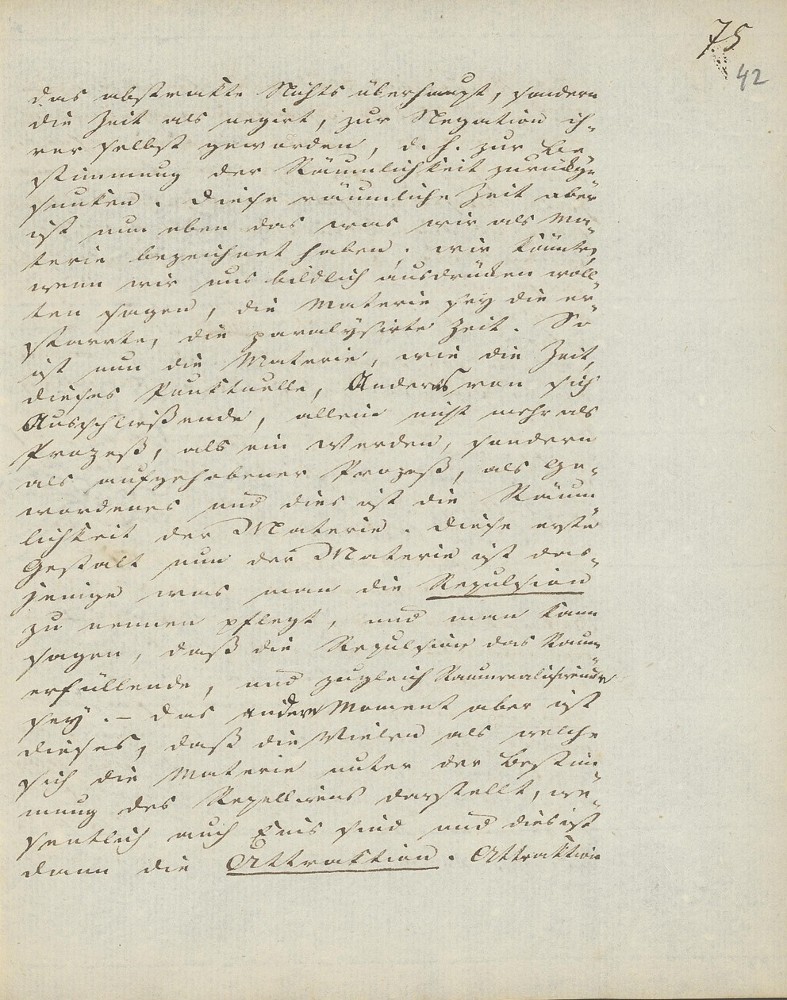 75
42
das abstrakte Nichts überhaupt, sondern
die Zeit als negirt, zur Negation ih-
rer selbst geworden, d. h. zur Be
stimmung der Räumlichkeit zurückge
sunken. Diese räumliche Zeit aber
ist nun eben das was wir als Ma-
terie bezeichnet haben. Wir könnten,
wenn wir uns bildlich ausdrücken woll-
ten sagen, die Materie sey die er
starrte, die paralysirte Zeit. So
ist nun die Materie, wie die Zeit,
dieses Punktuelle, Anderes von sich
Ausschließende, allein nicht mehr als
Prozeß, als ein Werden, sondern
als aufgehobener Prozeß, als Ge-
wordenes und dies ist die Räum
lichkeit der Materie. Diese erste
Gestalt nun der Materie ist das-
jenige was man die Repulsion
zu nennen pflegt, und man kann
sagen, daß die Repulsion das Raum
erfüllende, und zugleich Raumrealisirende
sey. – Das andere Moment aber ist
dieses, daß die Vielen als welche
sich die Materie unter der Bestim
mung des Repellirens darstellt, we-
sentlich auch Eins sind und dies ist
dann die Attraktion. Attraktion